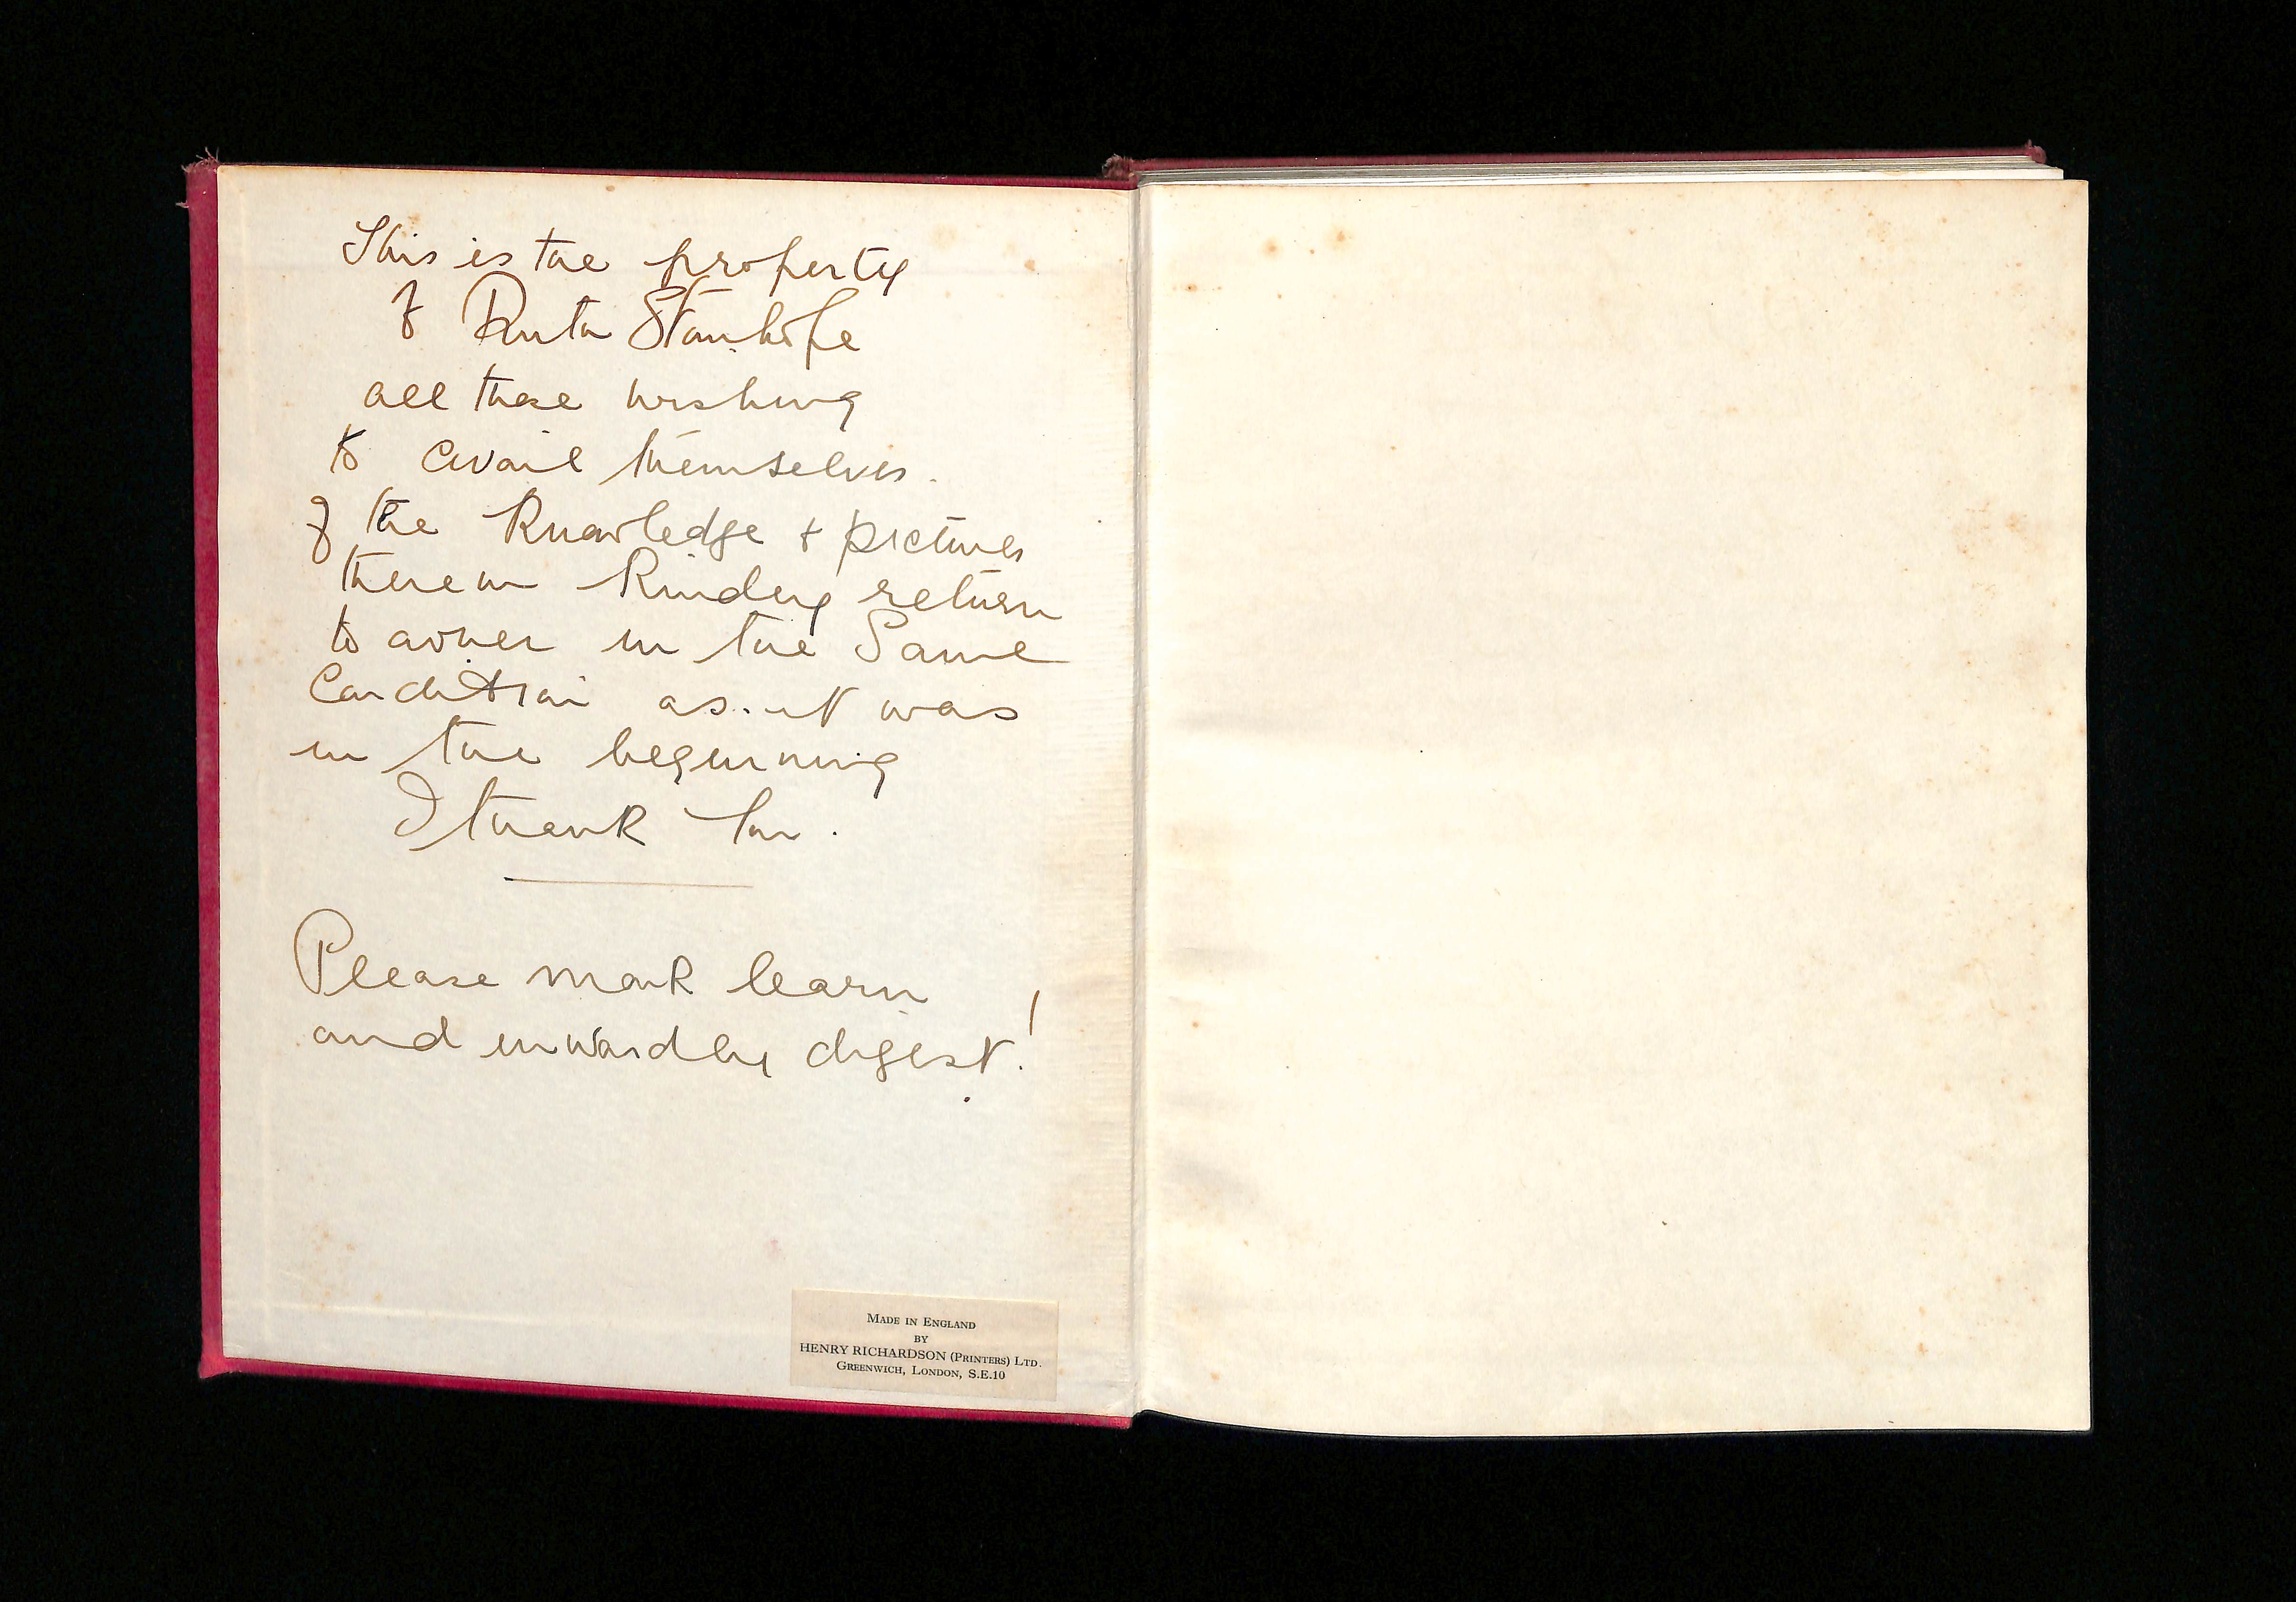 This is the property
of Ruth Stanhope
all those wishing
to avail themselves.
of the Knowledge + pictures
therein Kindly return
to owner in the Same
Condition as it was
in the beginning
I thank You.
Please mark learn
and inwardly digest!
MADE IN ENGLAND
BY
HENRY RICHARDSON (PRINTERS) LTD.
GREENWICH, LONDON, S.E.10